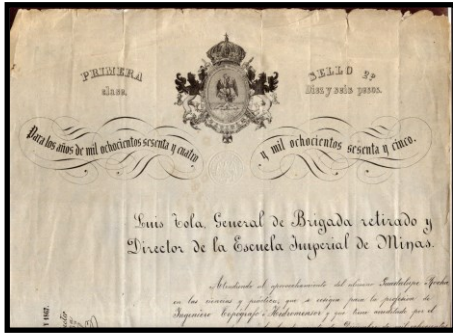 PRIMERA
clase.
SELLO 2º
Diez y seis pesos.
Para los años de mil ochocientos sesenta y cuatro
y mil ochocientos sesenta y cinco.
Luis Tola, General de Brigada retirado y
Director de la Escuela Imperial de Minas.
Atendiendo al aprovechamiento del alumno Guadalupe
en las ciencias y práctica, que se exigen para la profesión de
Ingeniero Topógrafo é Hidromensor y que tiene acreditado por el
Y 1867.